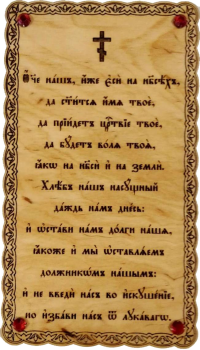 Ѻ҆́че на́шъ, и҆́же є҆сѝ на нб҃сѣ́хъ,
да ст҃и́тсѧ и҆́мѧ твоѐ,
да прїи́детъ црⷭ҇твїе твоѐ,
да бꙋ́детъ во́лѧ твоѧ̀,
ꙗ҆́кѡ на нб҃сѝ и҆ на землѝ.
Хлѣ́бъ на́шъ насꙋ́щный
да́ждь на́мъ дне́сь:
и҆ ѡ҆ста́ви на́мъ до́лги на́шѧ,
ꙗ҆́коже и҆ мы̀ ѡ҆ставлѧ́емъ
должникѡ́мъ на́шымъ:
и҆ не введѝ на́съ во и҆скꙋше́нїе,
но и҆зба́ви на́съ ѿ лꙋка́вагѡ